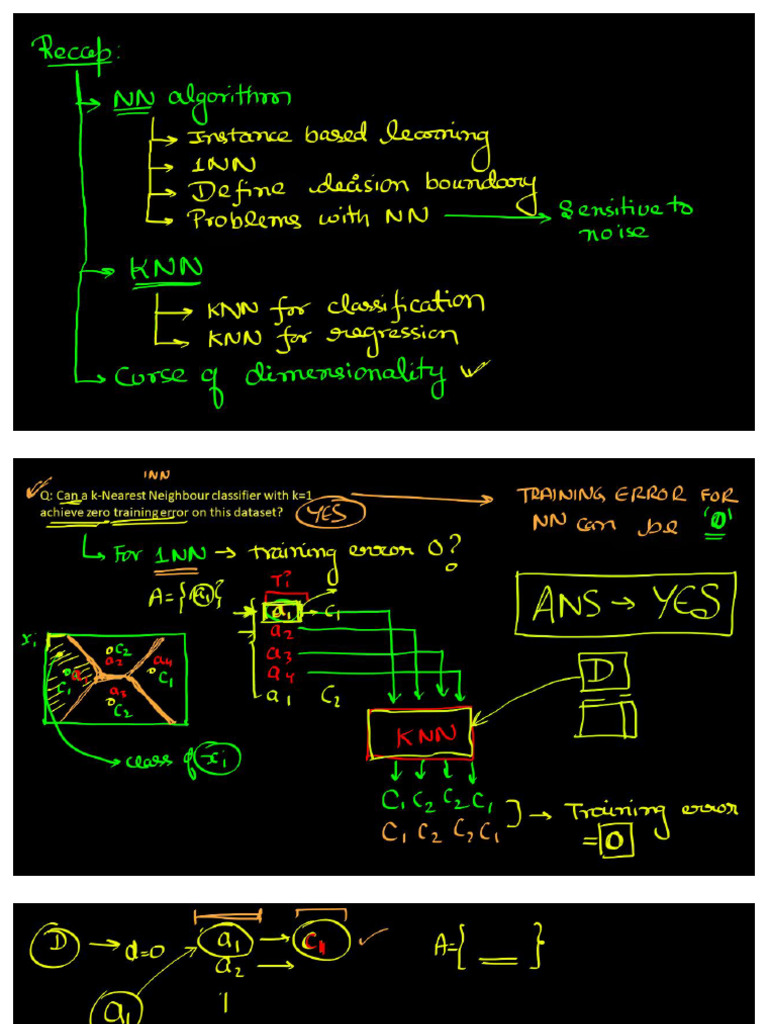 Recap:
NN algorithm
Instance based learning
1NN
Define decision boundary
Problems with NN
Sensitive to
noise
KNN
KNN for classification
KNN for regression
Curse of dimensionality
1NN
Q: Can a k-Nearest Neighbour classifier with k=1
achieve zero training error on this dataset?
YES
TRAINING ERROR FOR
NN can be '0'
For 1NN → training error 0?
A={a1}
Ti
a1 → C1
a2
a3
a4
a1 C2
ANS → YES
D
xi
C2
a2
a4
a1
C1
C1
a3
C2
class of xi
KNN
C1 C2 C2 C1
C1 C2 C2 C1
→ Training error
= 0
D → d=0
a1 → C1
a2 →
A={ __ }
a1